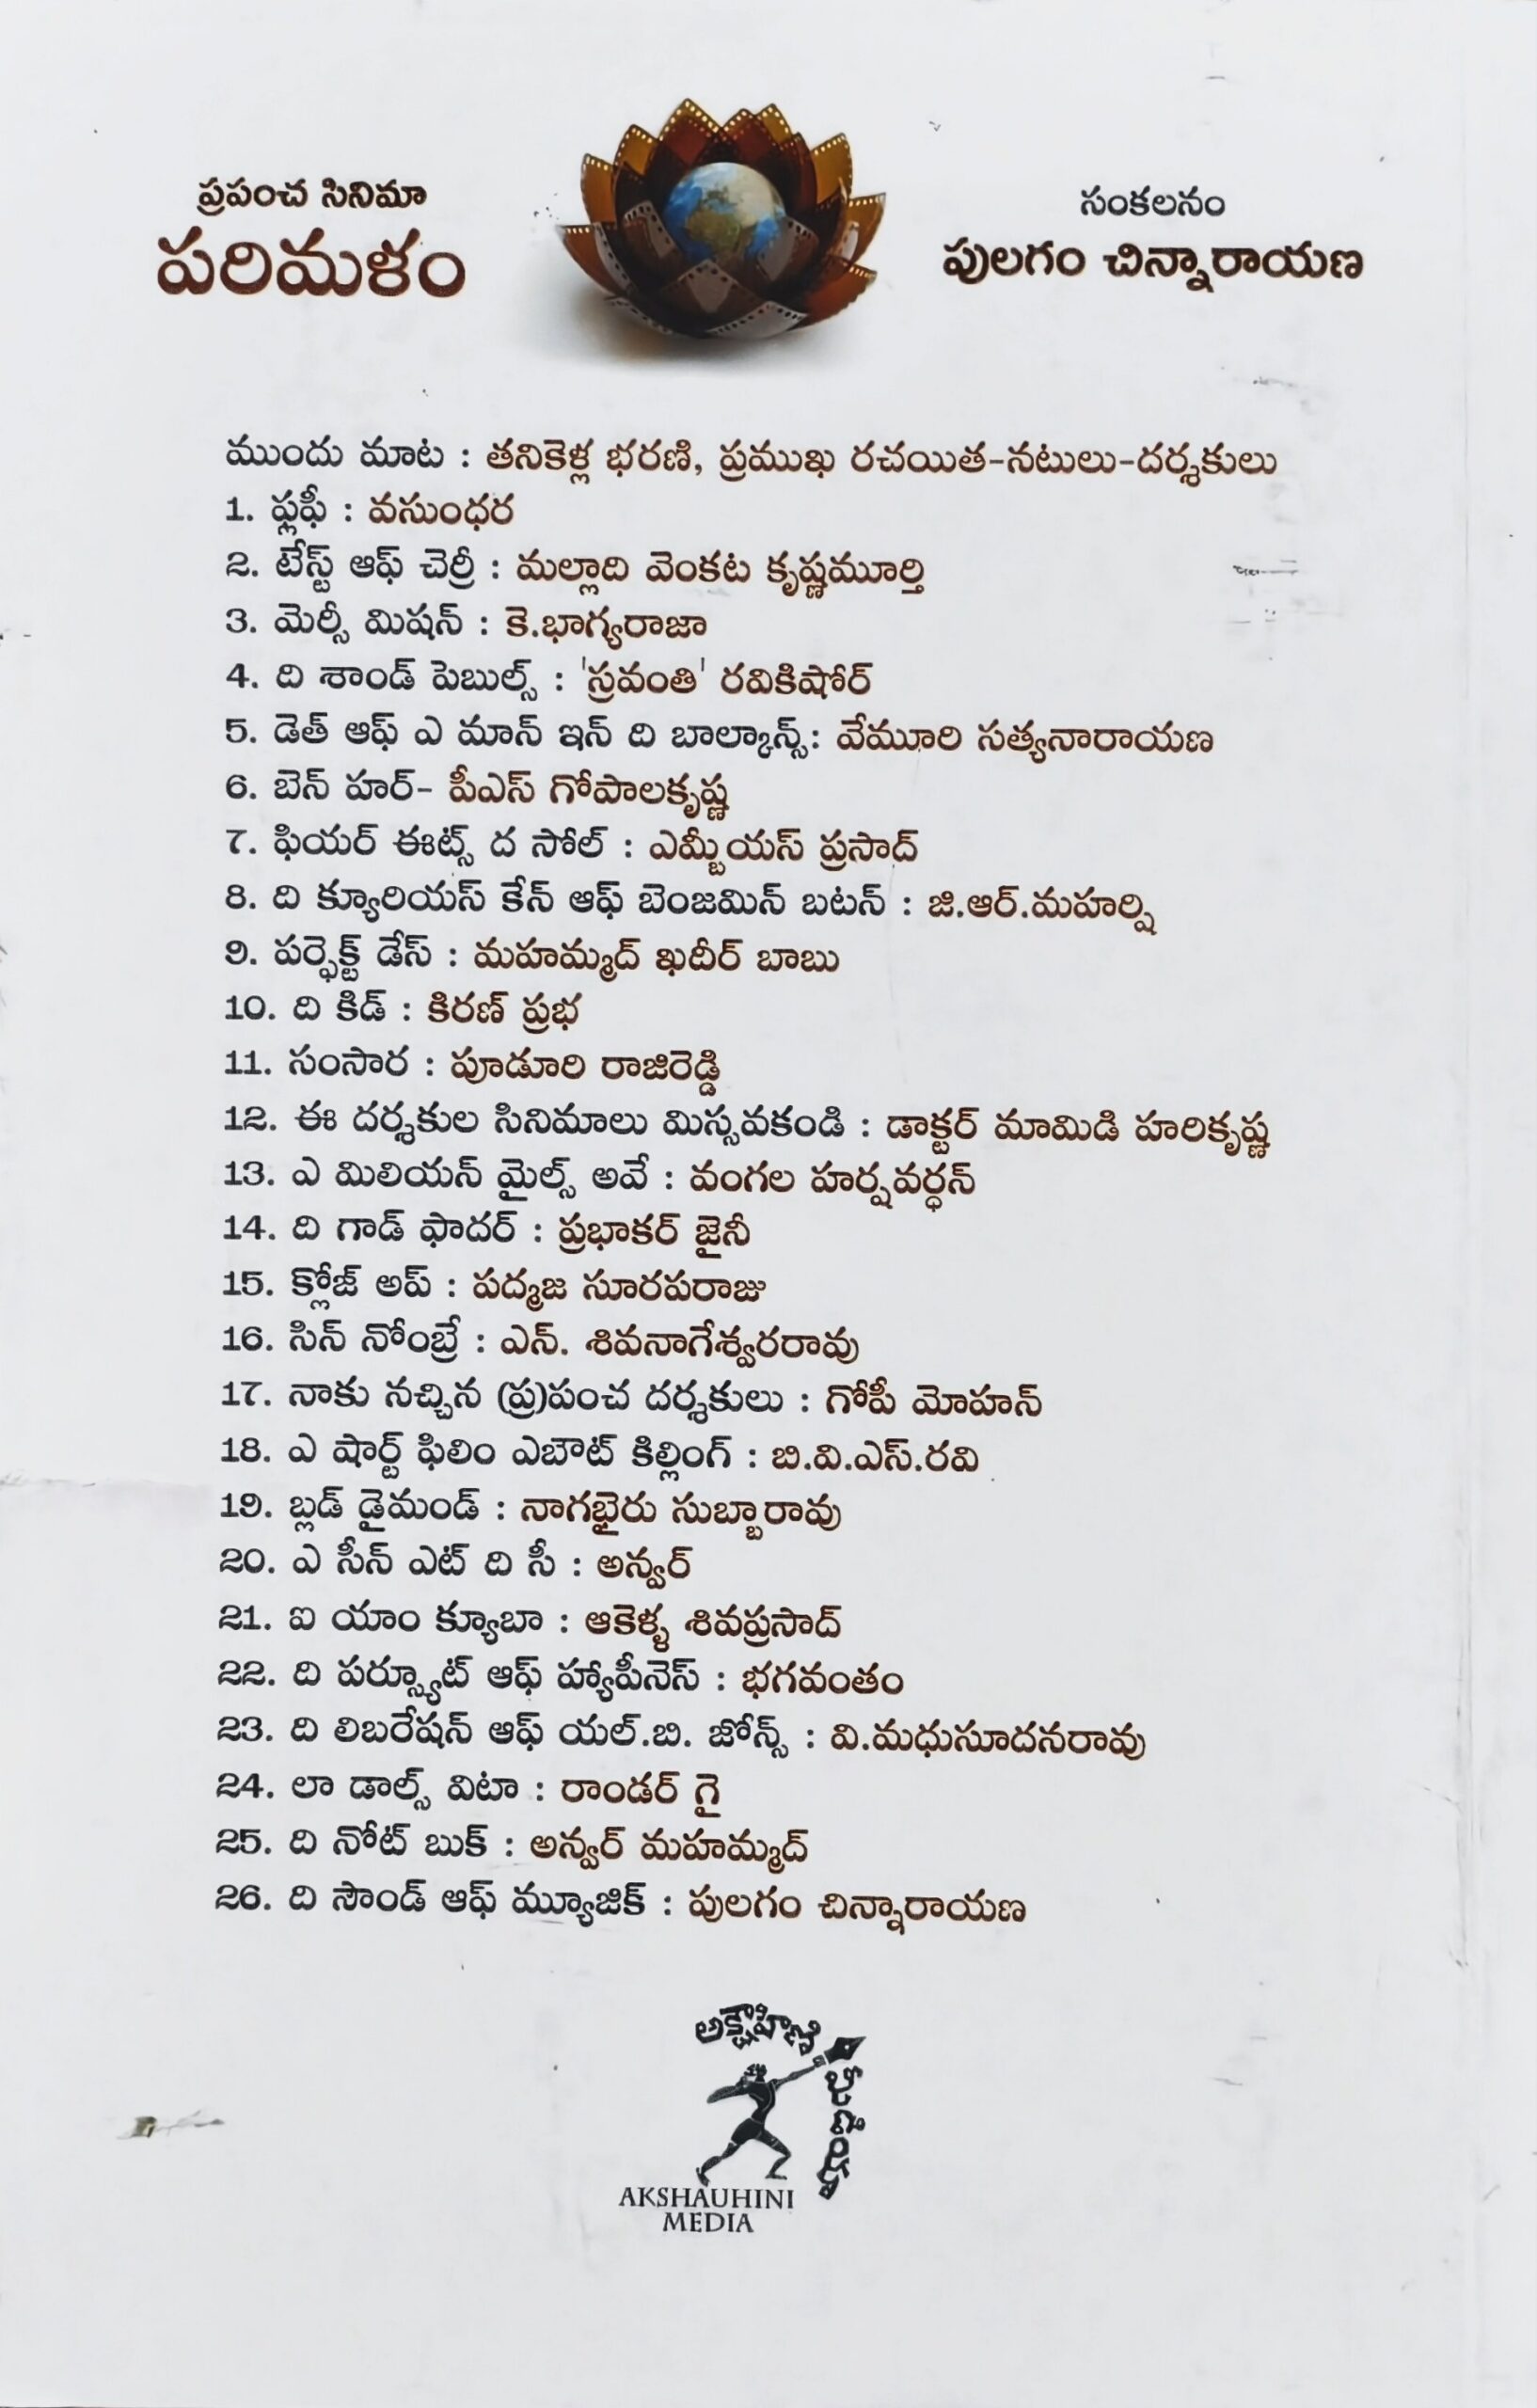 ప్రపంచ సినిమా
పరిమళం
సంకలనం
పులగం చిన్నారాయణ
ముందు మాట : తనికెళ్ల భరణి, ప్రముఖ రచయిత-నటులు-దర్శకులు
1. ఫ్లఫీ : వసుంధర
2. టేస్ట్ ఆఫ్ చెర్రీ : మల్లాది వెంకట కృష్ణమూర్తి
3. మెర్సీ మిషన్ : కె.భాగ్యరాజా
4. ది శాండ్ పెబుల్స్ : 'స్రవంతి' రవికిషోర్
5. డెత్ ఆఫ్ ఎ మాన్ ఇన్ ది బాల్కాన్స్: వేమూరి సత్యనారాయణ
6. బెన్ హర్- పీఎస్ గోపాలకృష్ణ
7. ఫియర్ ఈట్స్ ద సోల్ : ఎమ్బీయస్ ప్రసాద్
8. ది క్యూరియస్ కేన్ ఆఫ్ బెంజమిన్ బటన్ : జి.ఆర్.మహర్షి
9. పర్ఫెక్ట్ డేస్ : మహమ్మద్ ఖదీర్ బాబు
10. ది కిడ్ : కిరణ్ ప్రభ
11. సంసార : పూడూరి రాజిరెడ్డి
12. ఈ దర్శకుల సినిమాలు మిస్సవకండి : డాక్టర్ మామిడి హరికృష్ణ
13. ఎ మిలియన్ మైల్స్ అవే : వంగల హర్షవర్ధన్
14. ది గాడ్ ఫాదర్ : ప్రభాకర్ జైనీ
15. క్లోజ్ అప్ : పద్మజ సూరపరాజు
16. సిన్ నోంబ్రే : ఎన్. శివనాగేశ్వరరావు
17. నాకు నచ్చిన (ప్ర)పంచ దర్శకులు : గోపీ మోహన్
18. ఎ షార్ట్ ఫిలిం ఎబౌట్ కిల్లింగ్ : బి.వి.ఎస్.రవి
19. బ్లడ్ డైమండ్ : నాగభైరు సుబ్బారావు
20. ఎ సీన్ ఎట్ ది సీ : అన్వర్
21. ఐ యాం క్యూబా : ఆకెళ్ళ శివప్రసాద్
22. ది పర్స్యూట్ ఆఫ్ హ్యాపీనెస్ : భగవంతం
23. ది లిబరేషన్ ఆఫ్ యల్.బి. జోన్స్ : వి.మధుసూదనరావు
24. లా డాల్స్ విటా : రాండర్ గై
25. ది నోట్ బుక్ : అన్వర్ మహమ్మద్
26. ది సౌండ్ ఆఫ్ మ్యూజిక్ : పులగం చిన్నారాయణ
అక్షౌహిణి
AKSHAUHINI
MEDIA